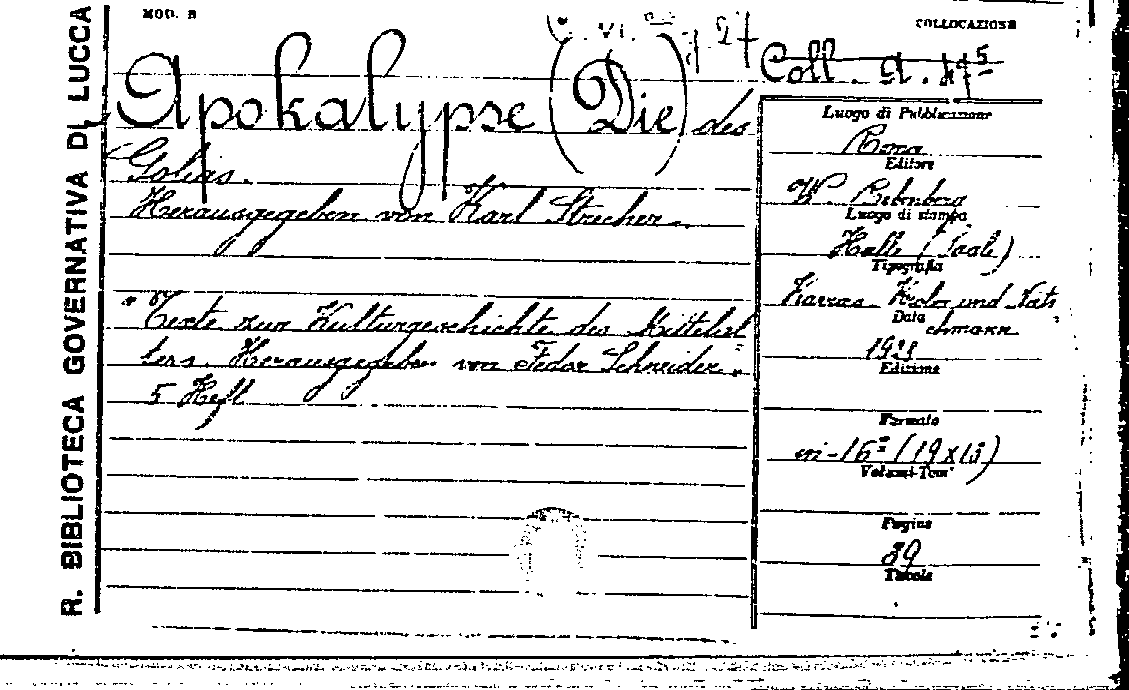 MOD. B
COLLOCAZIONE
R. BIBLIOTECA GOVERNATIVA DI LUCCA
Coll. A.
Apokalypse (Die) des
Golias.
Herausgegeben von Karl Strecher.
"Texte zur Kulturgeschichte des Mittelal=
ters. Herausgegeben von Fedor Schneider".
5 Heft
Luogo di Pubblicazione
Roma
Editore
W.
Luogo di stampa
Halle (Saale)
Tipografia
Karras Kröber und Niets
chmann
Data
Edizione
Formato
in-16º
Volumi-Tomi
Pagine
39
Tavole